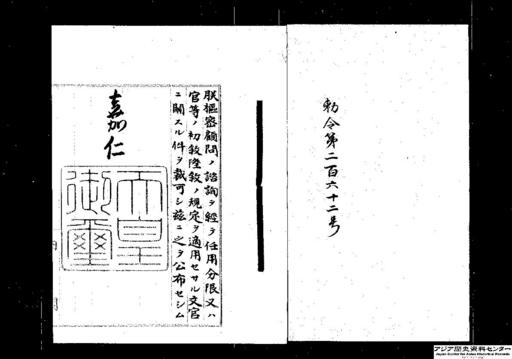 勅令第二百六十二号
朕枢密顧問ノ諮詢ヲ経テ任用分限又ハ
官等ノ初叙陞叙ノ規定ヲ適用セサル文官
ニ関スル件ヲ裁可シ茲ニ之ヲ公布セシム
嘉仁
天皇
御璽
アジア歴史資料センター
Japan Center for Asian Historical Records